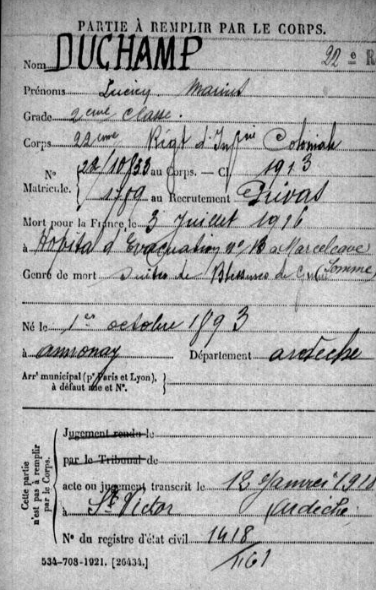 PARTIE À REMPLIR PAR LE CORPS.
Nom DUCHAMP 22e R
Prénoms Lucien Marius
Grade 2eme Classe
Corps 22eme Régt d'Infrie Coloniale
N° 22/10/533 au Corps. — Cl. 1913
Matricule. 1109 au Recrutement Privas
Mort pour la France le 3 Juillet 1916
à Hôpital d'Evacuation n° 13 à Marcelcave
Genre de mort Suites de Blessures de (Somme)
Né le 1er octobre 1893
à annonay Département ardèche
Arrt municipal (pr Paris et Lyon), à défaut rue et N°.
Cette partie n'est pas à remplir par le Corps.
Jugement rendu le
par le Tribunal de
acte ou jugement transcrit le 12 Janvier 1918
à St Victor Ardèche
N° du registre d'état civil 1418
/161
534-708-1921. [26434.]